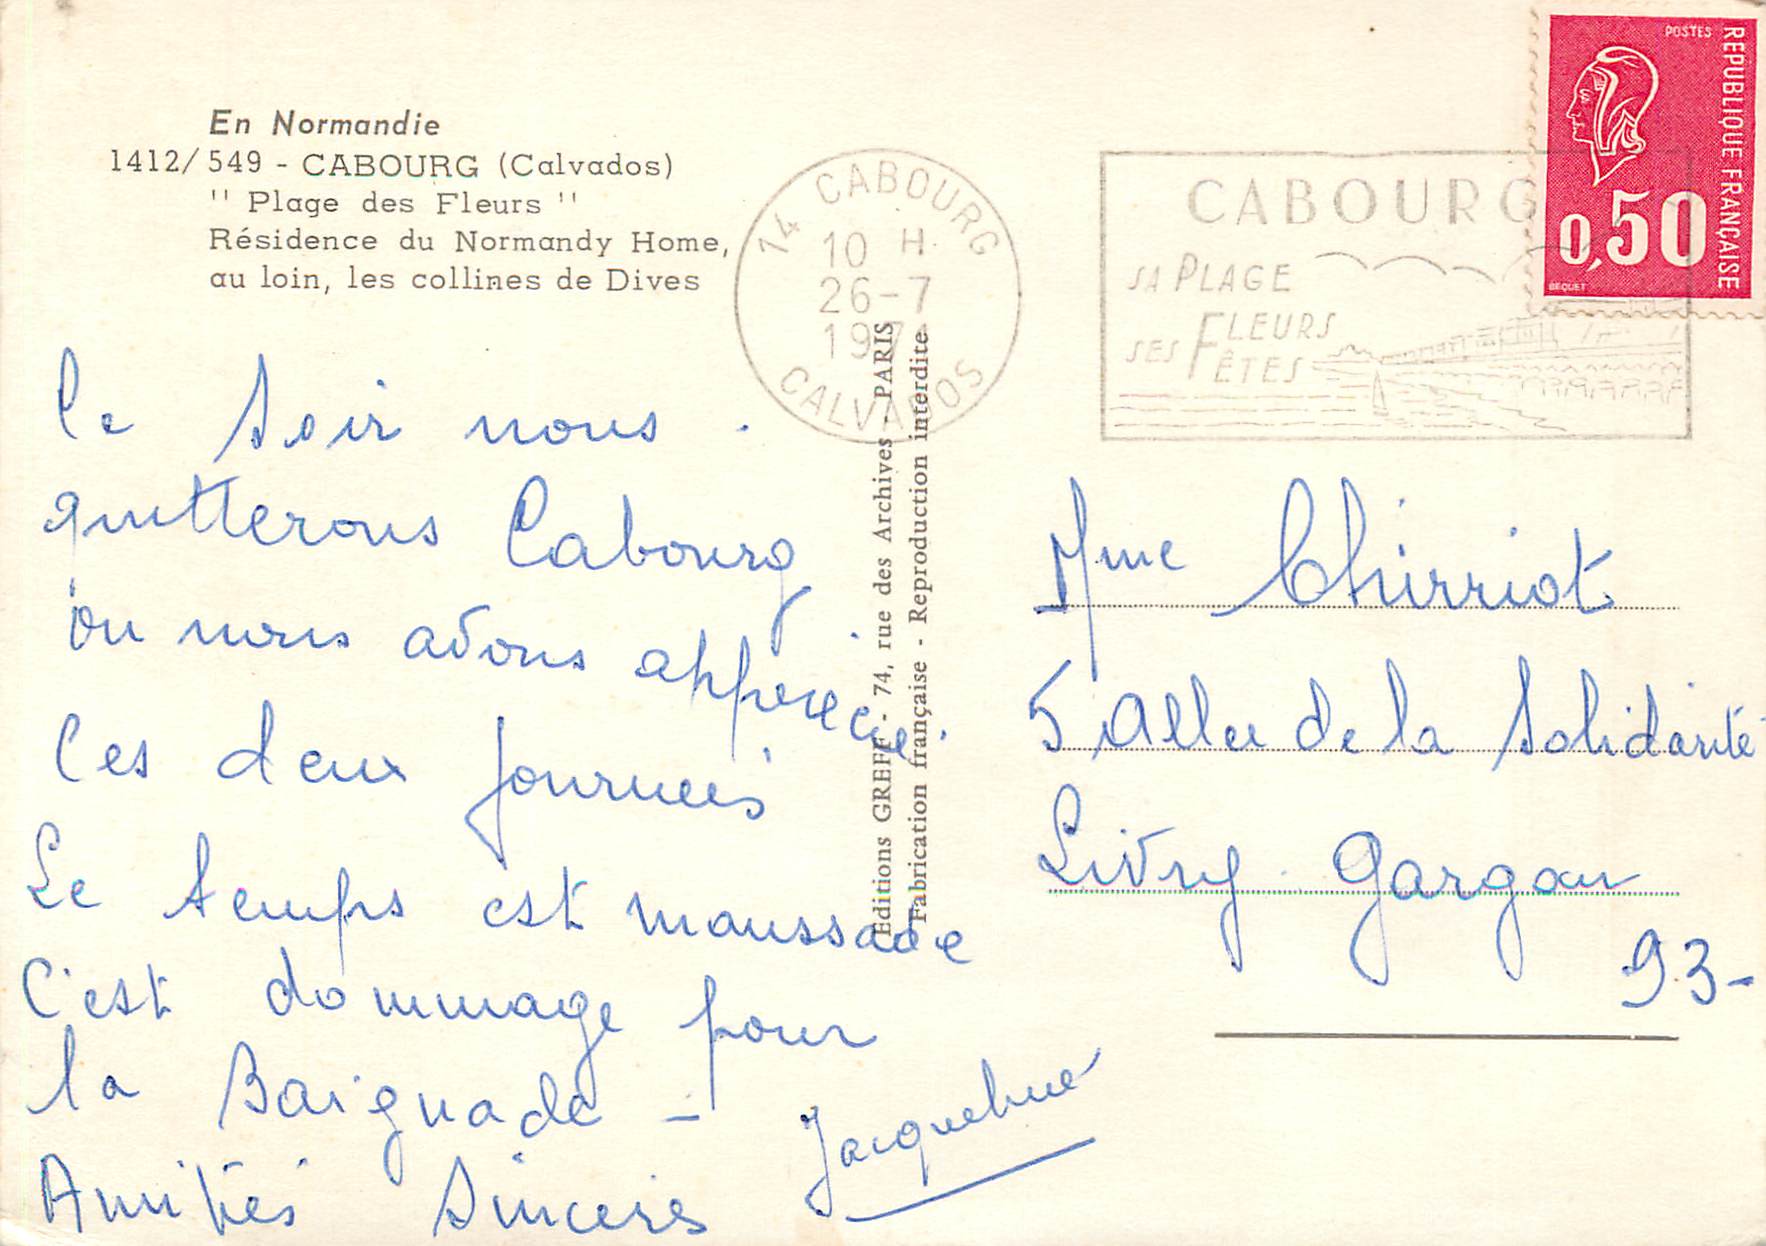 En Normandie
1412/549 - CABOURG (Calvados)
" Plage des Fleurs "
Résidence du Normandy Home,
au loin, les collines de Dives
14 CABOURG
10 H
26-7
CALVADOS
CABOURG
SA PLAGE
SES FLEURS
FÊTES
POSTES
REPUBLIQUE FRANÇAISE
0,50
BEQUET
Ce Soir nous
quitterons Cabourg
ou nous avons apprecié
Ces deux journeés
Le temps est maussade
C'est dommage pour
la Baignade -
Amitiés Sinceres
Jacqueline
Editions GREFF - 74, rue des Archives - PARIS
Fabrication française - Reproduction interdite
Mme Chirriot
5 Allee de la Solidarité
Livry Gargan
93-